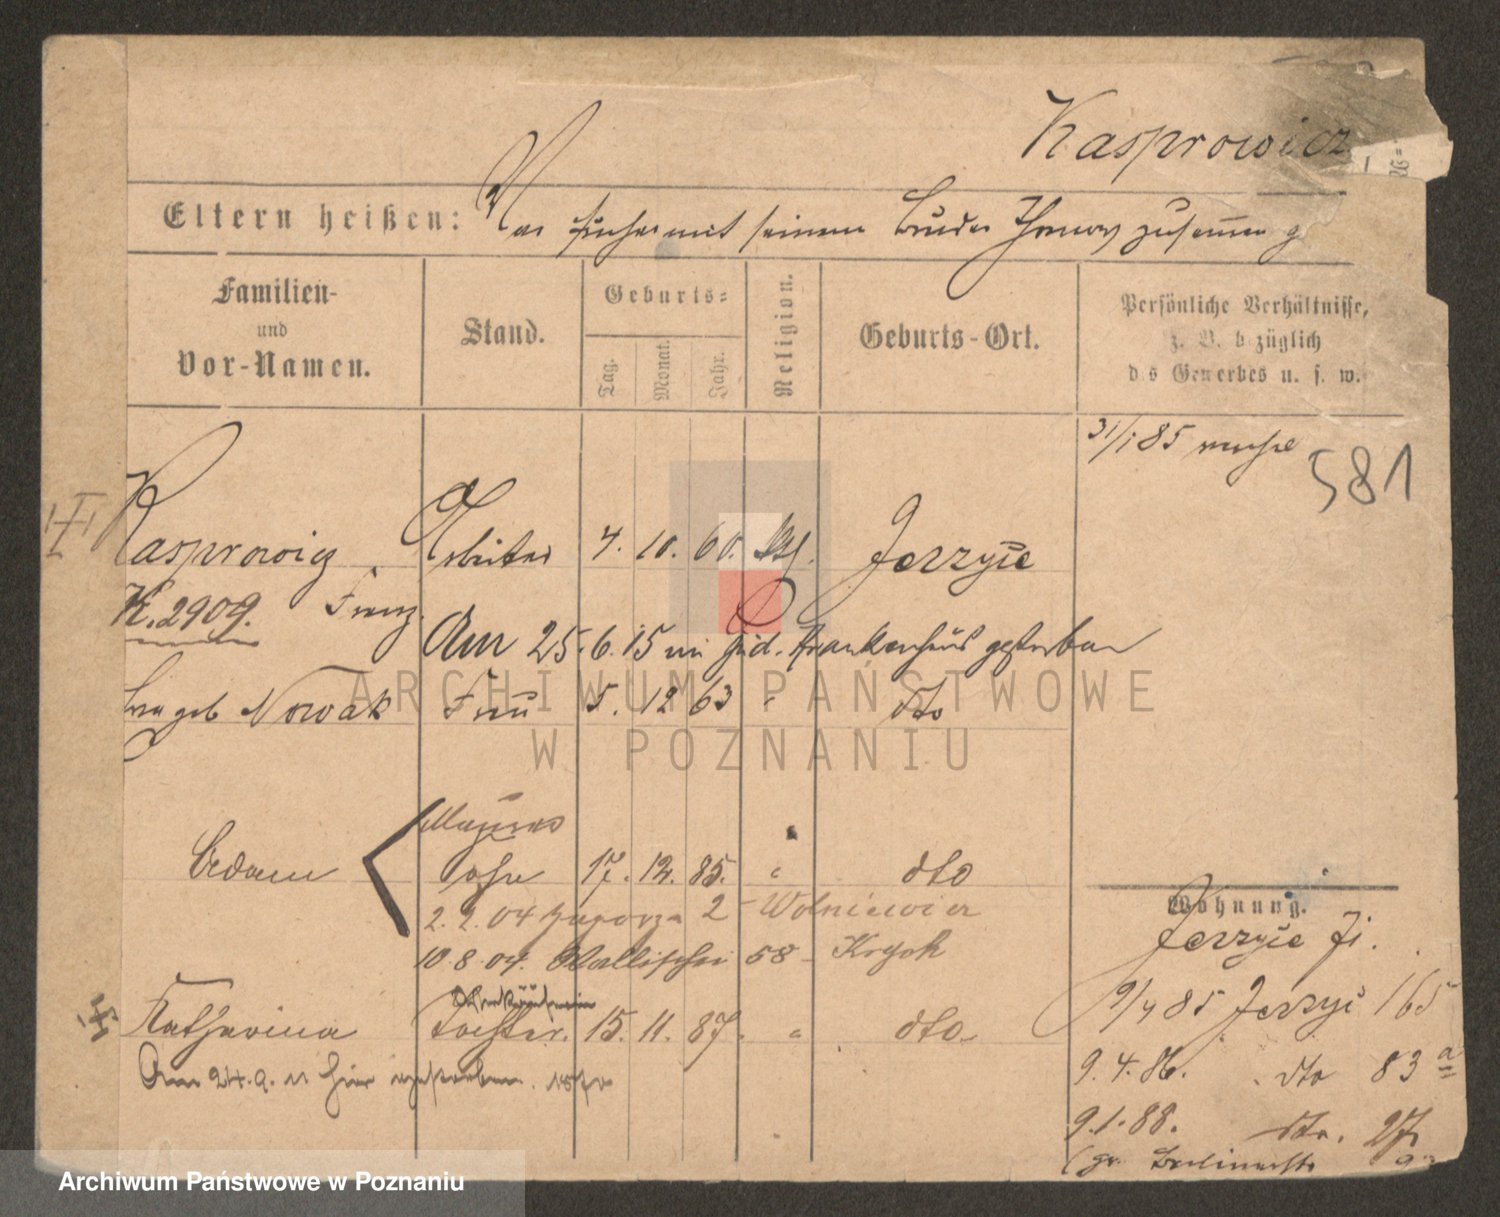 Kasprowicz
Eltern heißen: War früher mit seinem Bruder Thomas zusammen
Familien- und Vor-Namen.
Stand.
Geburts-
Tag.
Monat.
Jahr.
Religion.
Geburts-Ort.
Persönliche Verhältnisse,
z. B. bezüglich
des Gewerbes u. s. w.
31/1 85
581
Kasprowicz Arbeiter 4. 10. 60. kth. Jerzyce
K. 2909. Franz
Am 25.6.15 im Krankenhaus gestorben
geb Nowak Frau 5. 12 63 " dto
Adam Sohn 17. 12. 85. " dto
2.2.04 Zagorze 2 - Wolniewicz
10.8.04. Wallischei 58 - Krych
Katharina Tochter. 15. 11. 87. " dto
Am 24.9. 11 hier gestorben.
Wohnung.
Jerzyce
9/4 85 Jerzyc 165
9. 4. 86. dto 83 a
9. 1. 88. dto. 27
Archiwum Państwowe w Poznaniu
ARCHIWUM PAŃSTWOWE
W POZNANIU